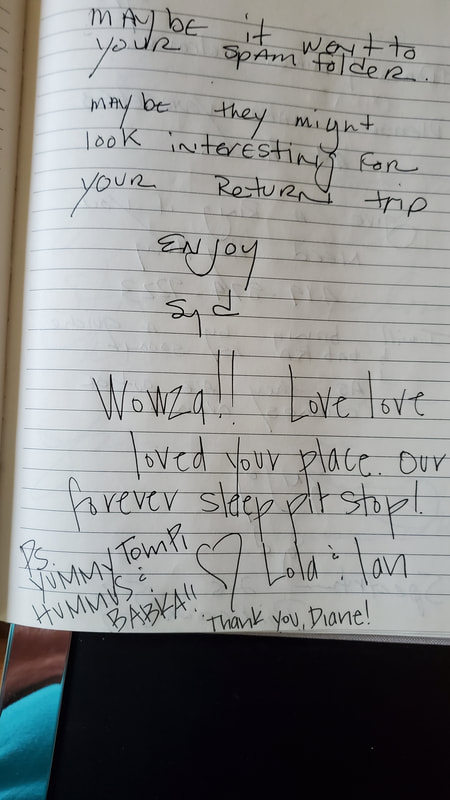 MAYBE it went to
your SPAM folder.
MAYBE they might
look interesting for
your Return trip
ENJOY
Syd
Wowza!! Love love
loved your place. Our
forever sleep pit stop!
♡ Lola & Ian
Thank you, Diane!
PS.
YUMMY TOMPI
HUMMUS &
BABKA!!